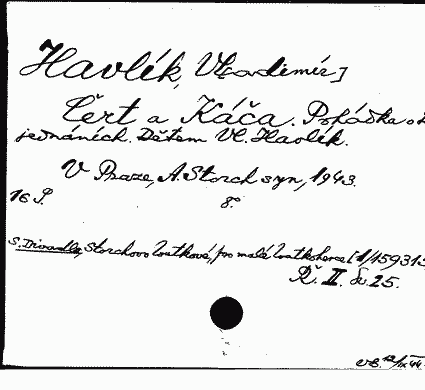 Havlík, Vl[adimír]
Čert a Káča. Pohádka o
jednáních. Dětem Vl. Havlík.
V Praze, A. Storch syn, 1943.
16 S. 8°
S. Divadla, Storchovo loutkové, pro malé loutkoherce [1/159313
Ř. II. Sv. 25.